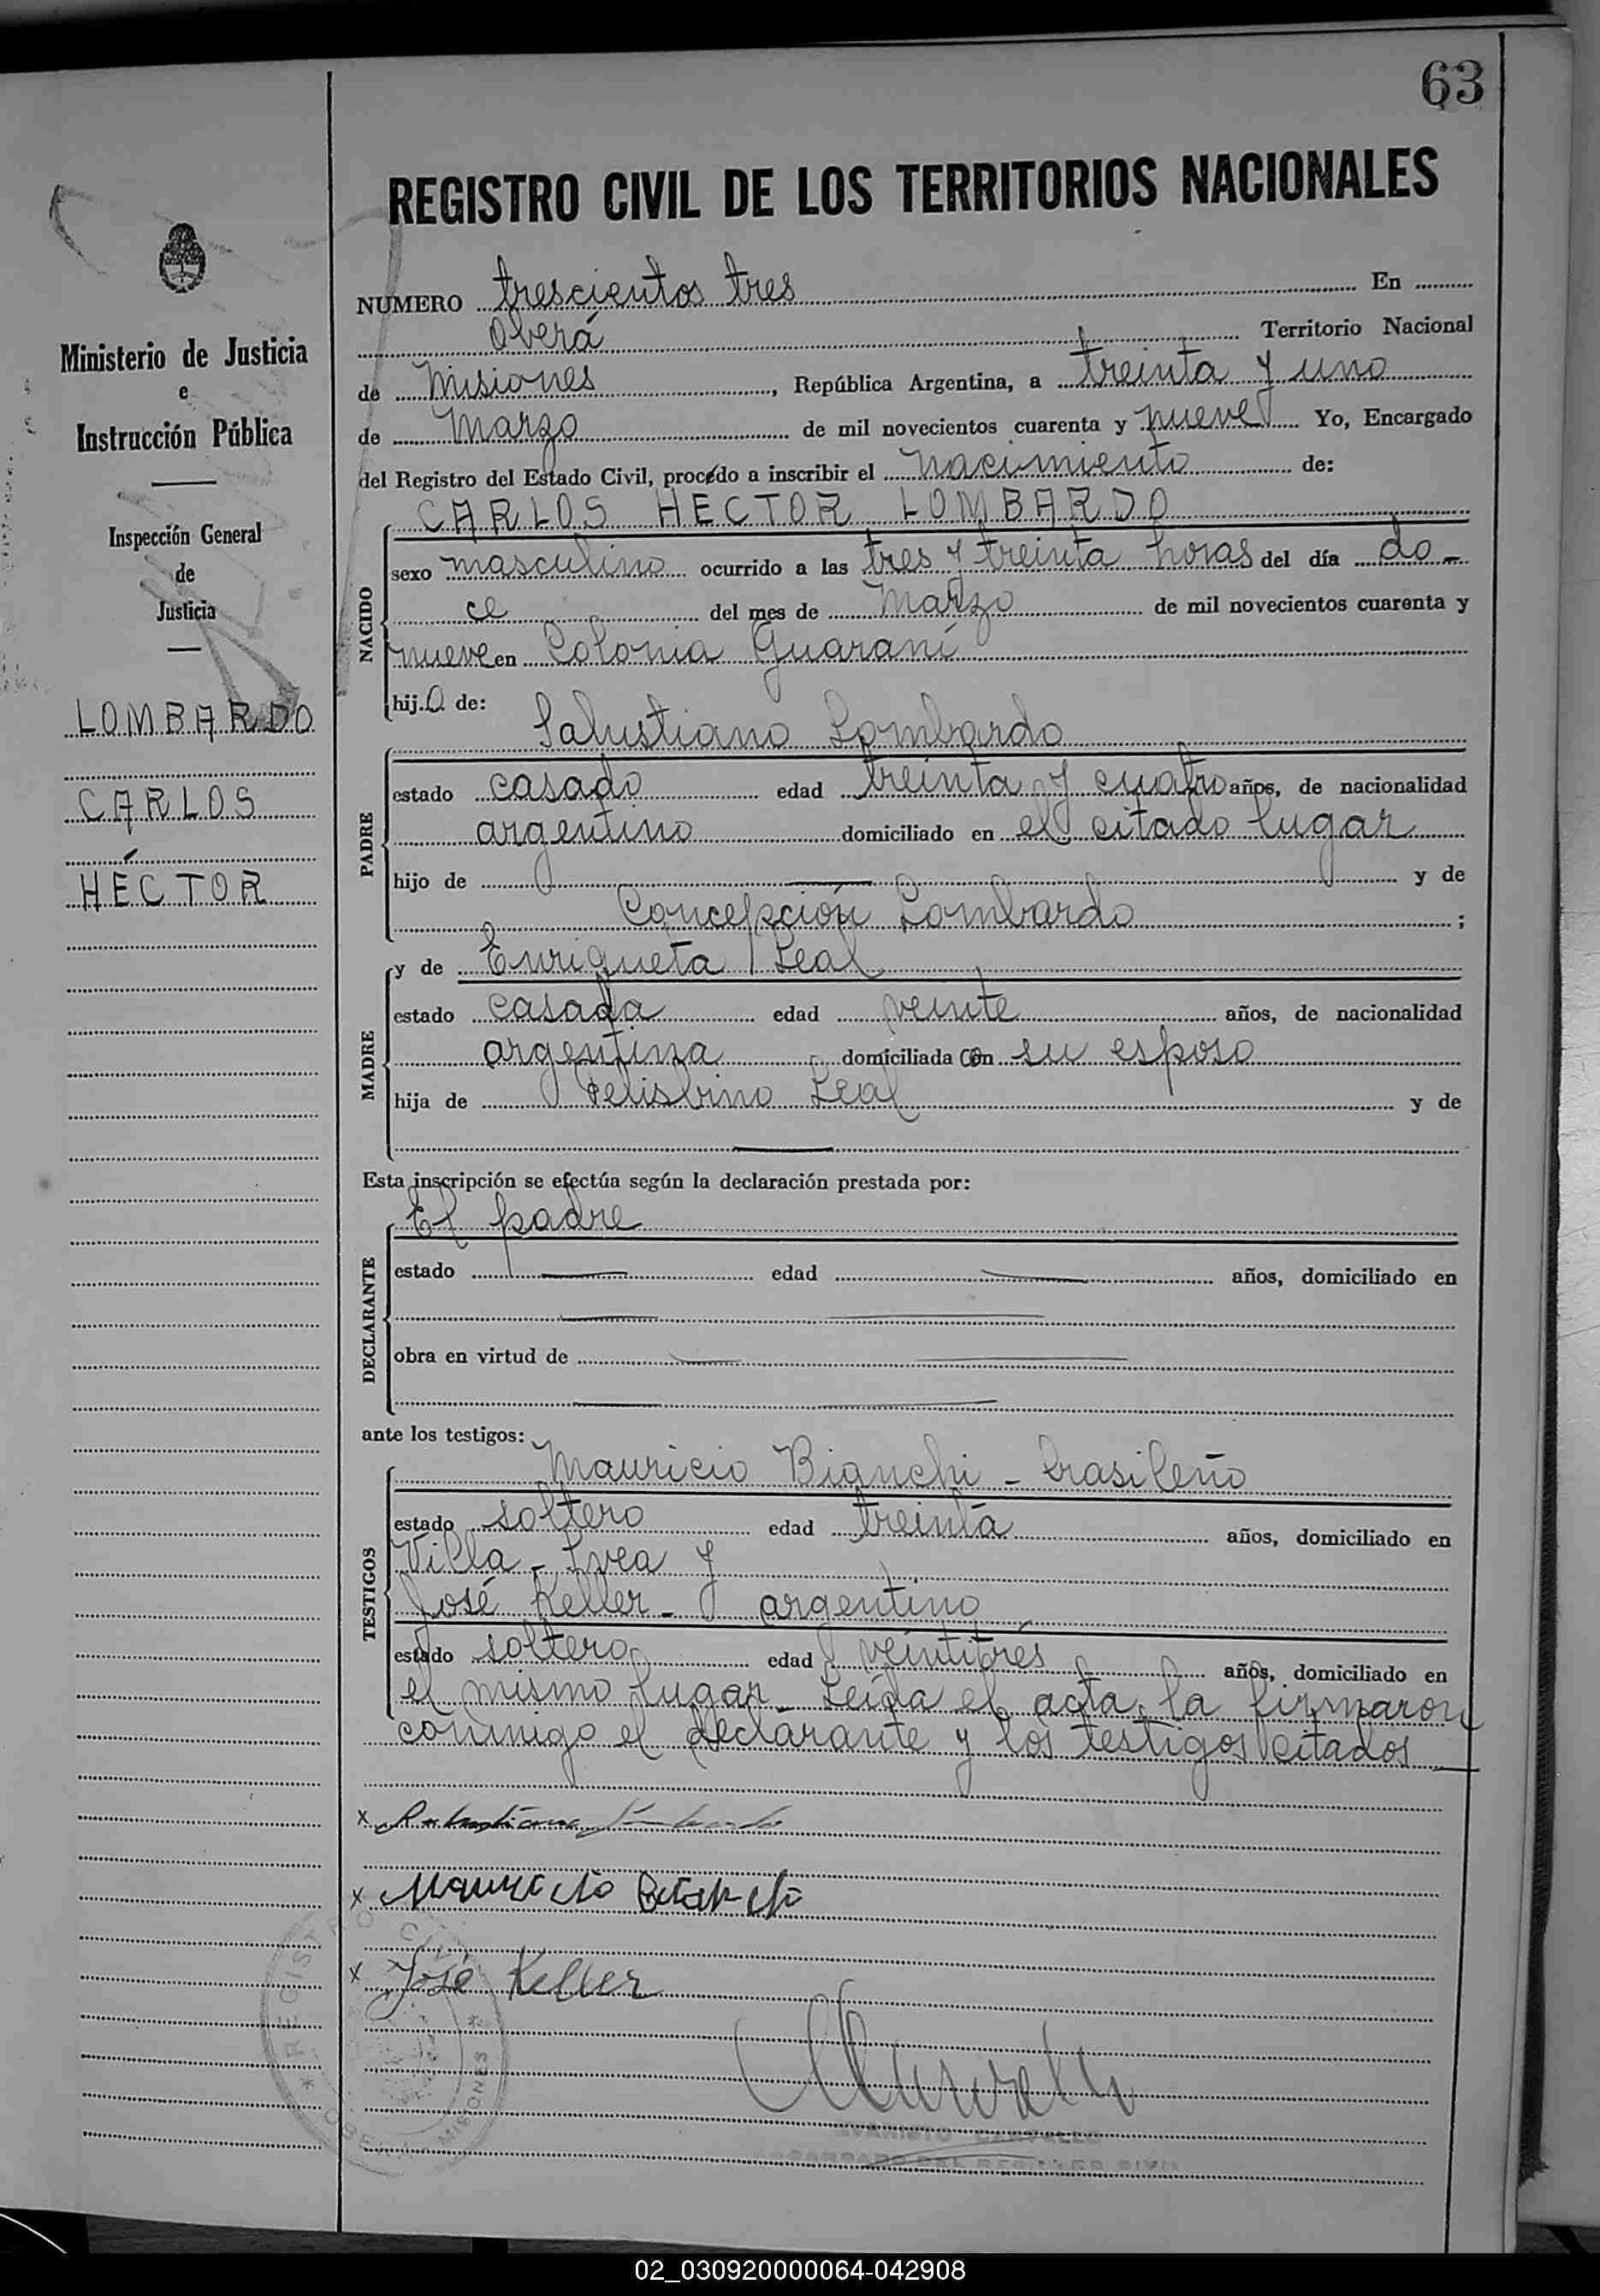 63
REGISTRO CIVIL DE LOS TERRITORIOS NACIONALES
Ministerio de Justicia
e
Instrucción Pública
Inspección General
de
Justicia
LOMBARDO
CARLOS
HÉCTOR
NUMERO trescientos tres En
Oberá Territorio Nacional
de Misiones, República Argentina, a treinta y uno
de Marzo de mil novecientos cuarenta y nueve Yo, Encargado
del Registro del Estado Civil, procedo a inscribir el nacimiento de:
CARLOS HECTOR LOMBARDO
NACIDO
sexo masculino ocurrido a las tres y treinta horas del día do-
ce del mes de Marzo de mil novecientos cuarenta y
nueve en Colonia Guaraní
hijo de:
Salustiano Lombardo
PADRE
estado casado edad treinta y cuatro años, de nacionalidad
argentino domiciliado en el citado lugar
hijo de — y de
Concepción Lombardo ;
MADRE
y de Enriqueta Leal
estado casada edad veinte años, de nacionalidad
argentina domiciliada con su esposo
hija de Felisbino Leal y de
—
Esta inscripción se efectúa según la declaración prestada por:
El padre
DECLARANTE
estado — edad — años, domiciliado en
obra en virtud de
ante los testigos:
Mauricio Bianchi - brasileño
TESTIGOS
estado soltero edad treinta años, domiciliado en
Villa - Svea y
José Keller - argentino
estado soltero edad veintitrés años, domiciliado en
el mismo lugar. Leída el acta, la firmaron
conmigo el declarante y los testigos citados
x Salustiano Lombardo
x Mauricio Bianchi
x José Keller
REGISTRO CIVIL
OBERA - MISIONES
ENCARGADO DEL REGISTRO CIVIL
02_030920000064-042908